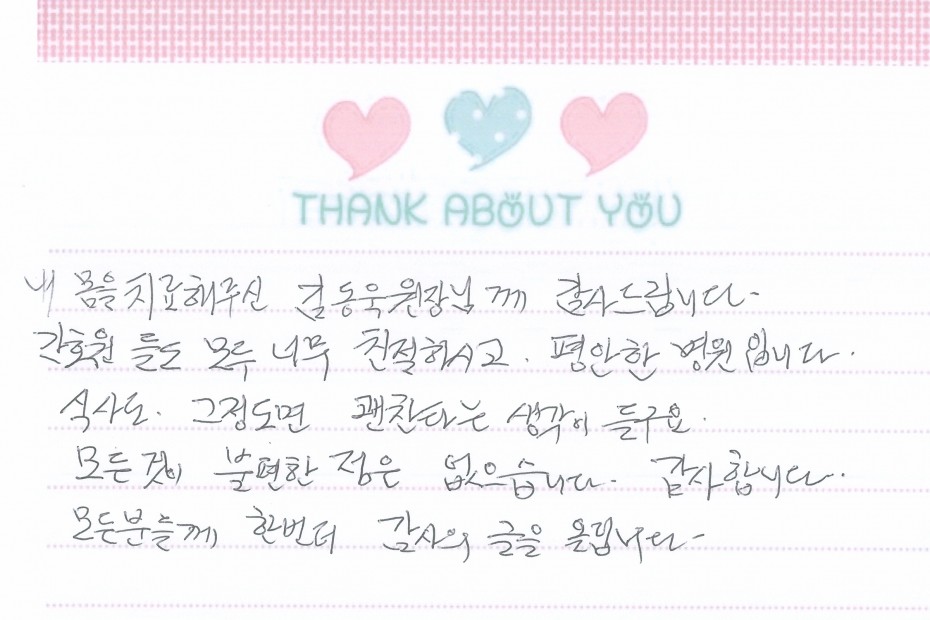 THANK ABOUT YOU
내 몸을 치료해주신 김동욱원장님께 감사드립니다-
간호원 들도 모두 너무 친절하시고. 평안한 병원입니다.
식사도. 그정도면 괜찬타는 생각이 들구요.
모든것이 불편한 점은 없으습니다. 감사합니다.
모든분들께 한번더 감사의 글을 올립니다-